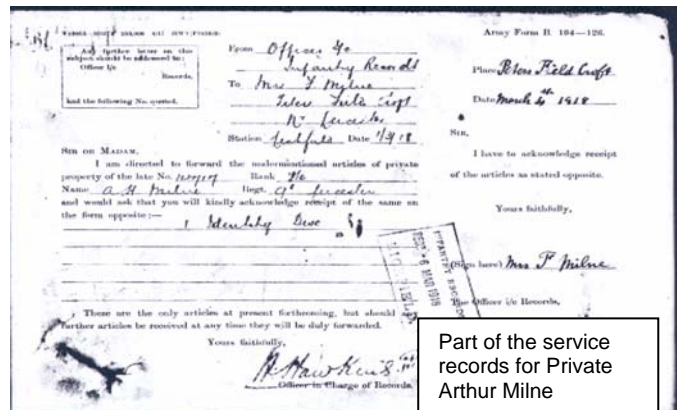 Army Form B. 104—126.
Any further letter on this
subject should be addressed to:—
Officer i/c
Records,
and the following No. quoted.
From Officer i/c
Infantry Records
To Mrs F Milne
Croft
Nr Leicester
Station Lichfield Date 1/3/18
SIR OR MADAM,
I am directed to forward the undermentioned articles of private
property of the late No. Rank Pte
Name A. H. Milne Regt. 9th Leicester
and would ask that you will kindly acknowledge receipt of the same on
the form opposite:—
1 Identity Disc
These are the only articles at present forthcoming, but should any
further articles be received at any time they will be duly forwarded.
Yours faithfully,
Officer in Charge of Records.
Place Peters Field Croft
Date March 4th 1918
SIR,
I have to acknowledge receipt
of the articles as stated opposite.
Yours faithfully,
(Sign here) Mrs F Milne
The Officer i/c Records,
INFANTRY RECORD
6 MAR 1918
LICHFIELD
Part of the service
records for Private
Arthur Milne